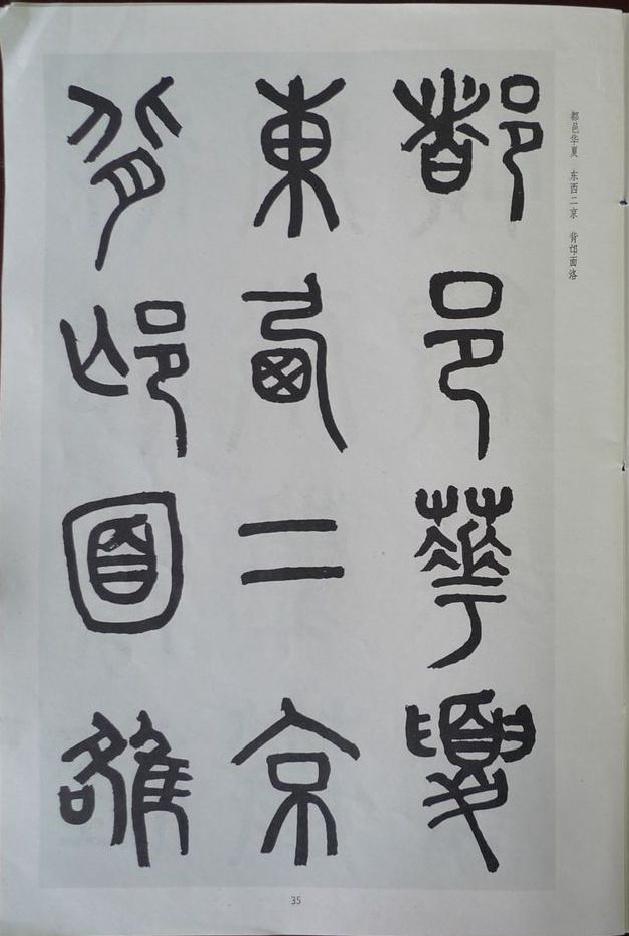 都邑华夏　东西二京　背邙面洛
都邑華夏
東西二京
背邙面雒
35